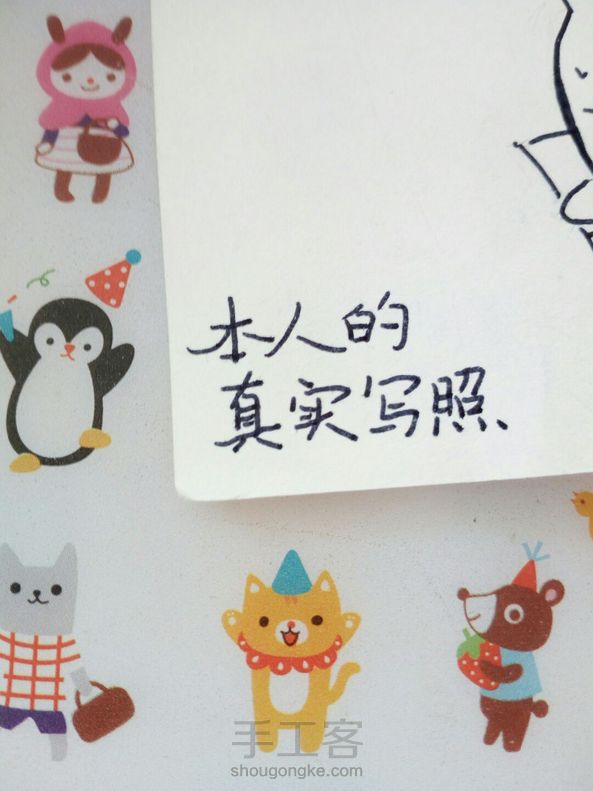 本人的
真实写照
手工客
shougongke.com